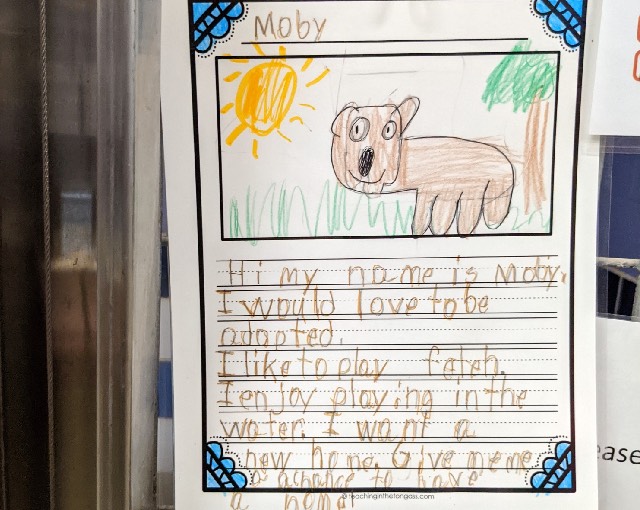 Moby
Hi my name is Moby.
I would love to be
adopted.
I like to play fetch.
I enjoy playing in the
water. I want a
new home. Give me me
a chance to have
a home!
© teachinginthetongass.com
ease